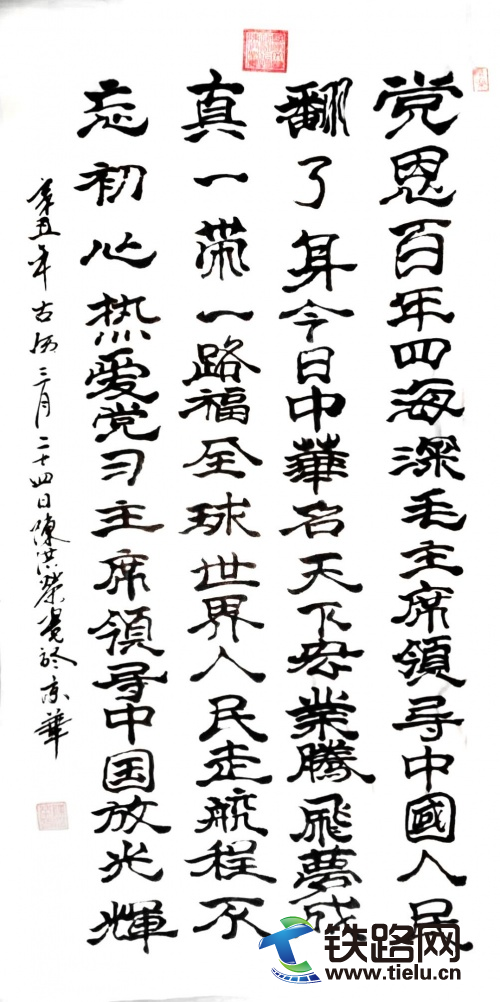 党恩百年四海深毛主席領导中國人民
翻了身今日中華名天下宏業騰飛夢成
真一帶一路福全球世界人民走航程不
忘初心热爱党习主席領导中国放光輝
辛丑年古历三月二十四日陳洪榮書於京華
铁路网
www.tielu.cn